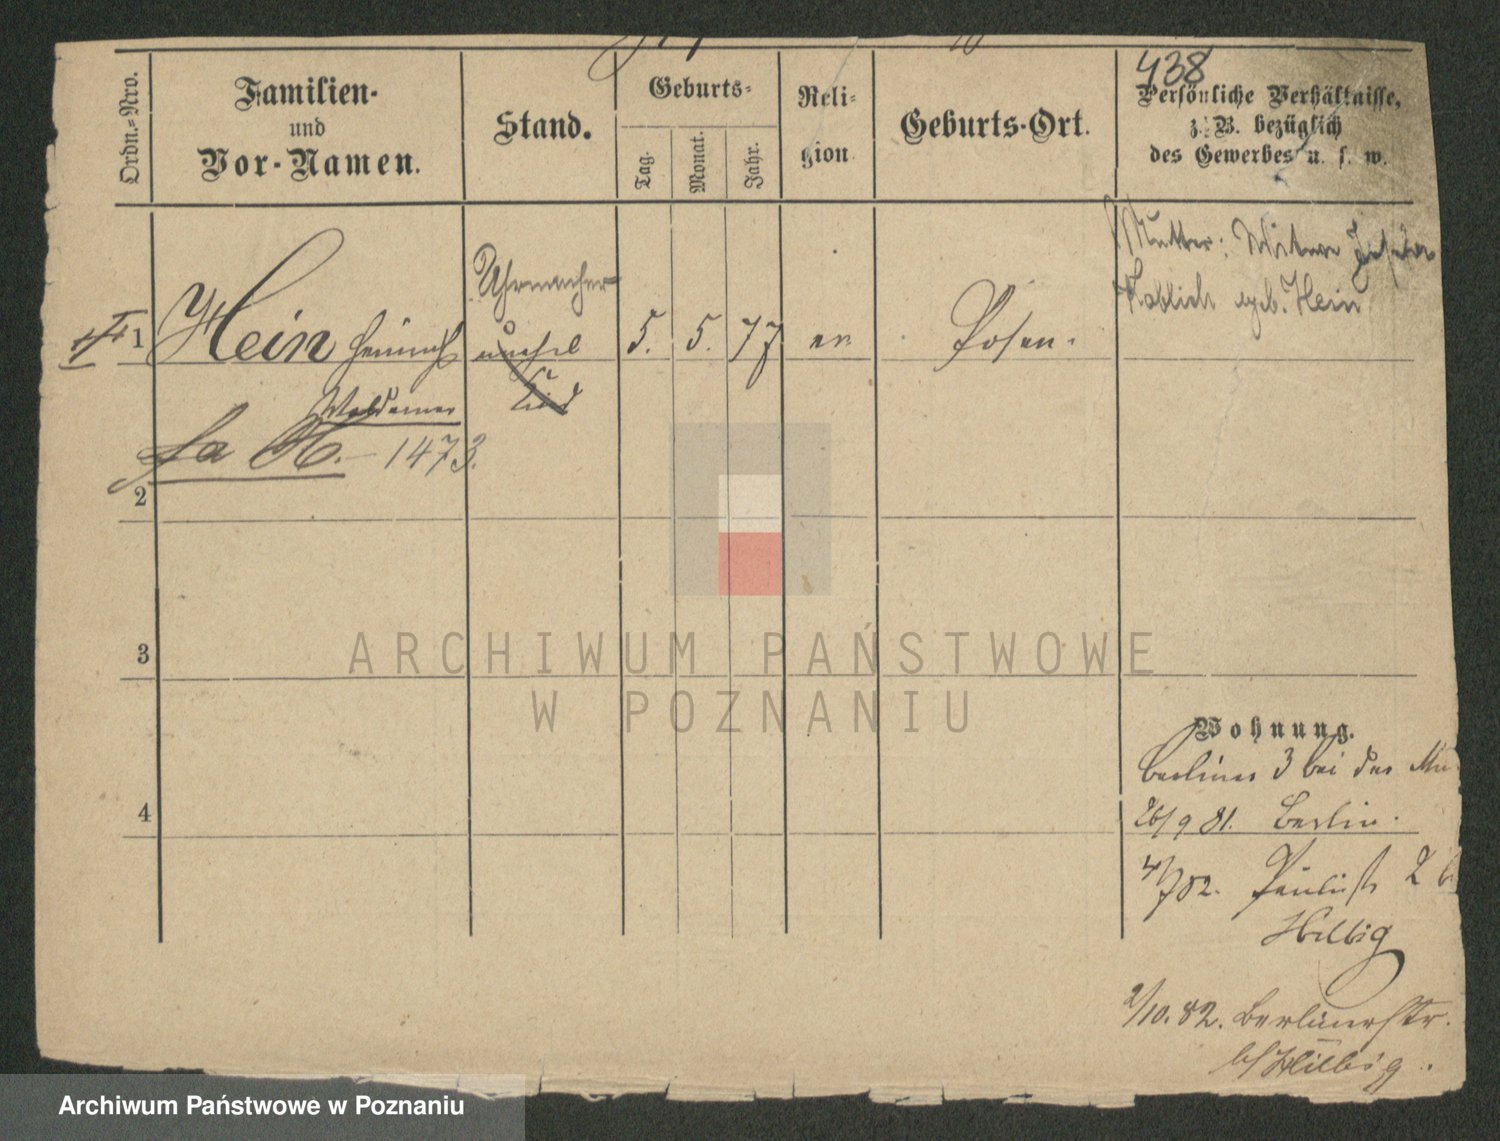 438
Ordn.-Nro.
Familien-
und
Vor-Namen.
Stand.
Geburts-
Tag.
Monat.
Jahr.
Reli-
gion
Geburts-Ort.
Persönliche Verhältnisse,
z. B. bezüglich
des Gewerbes u. s. w.
Mutter: Wittwe
geb. Hein
1 Hein Heinrich
Uhrmacher
Kind
5. 5. 77 ev. Posen.
Waldemar
1473.
2
3
4
Wohnung.
Berliner 3 bei der Mu
26/9 81. Berlin.
4/7 82. Paulist 2 b
Hilbig
2/10. 82. Berlinerstr.
b/ Hilbig.
ARCHIWUM PAŃSTWOWE
W POZNANIU
Archiwum Państwowe w Poznaniu